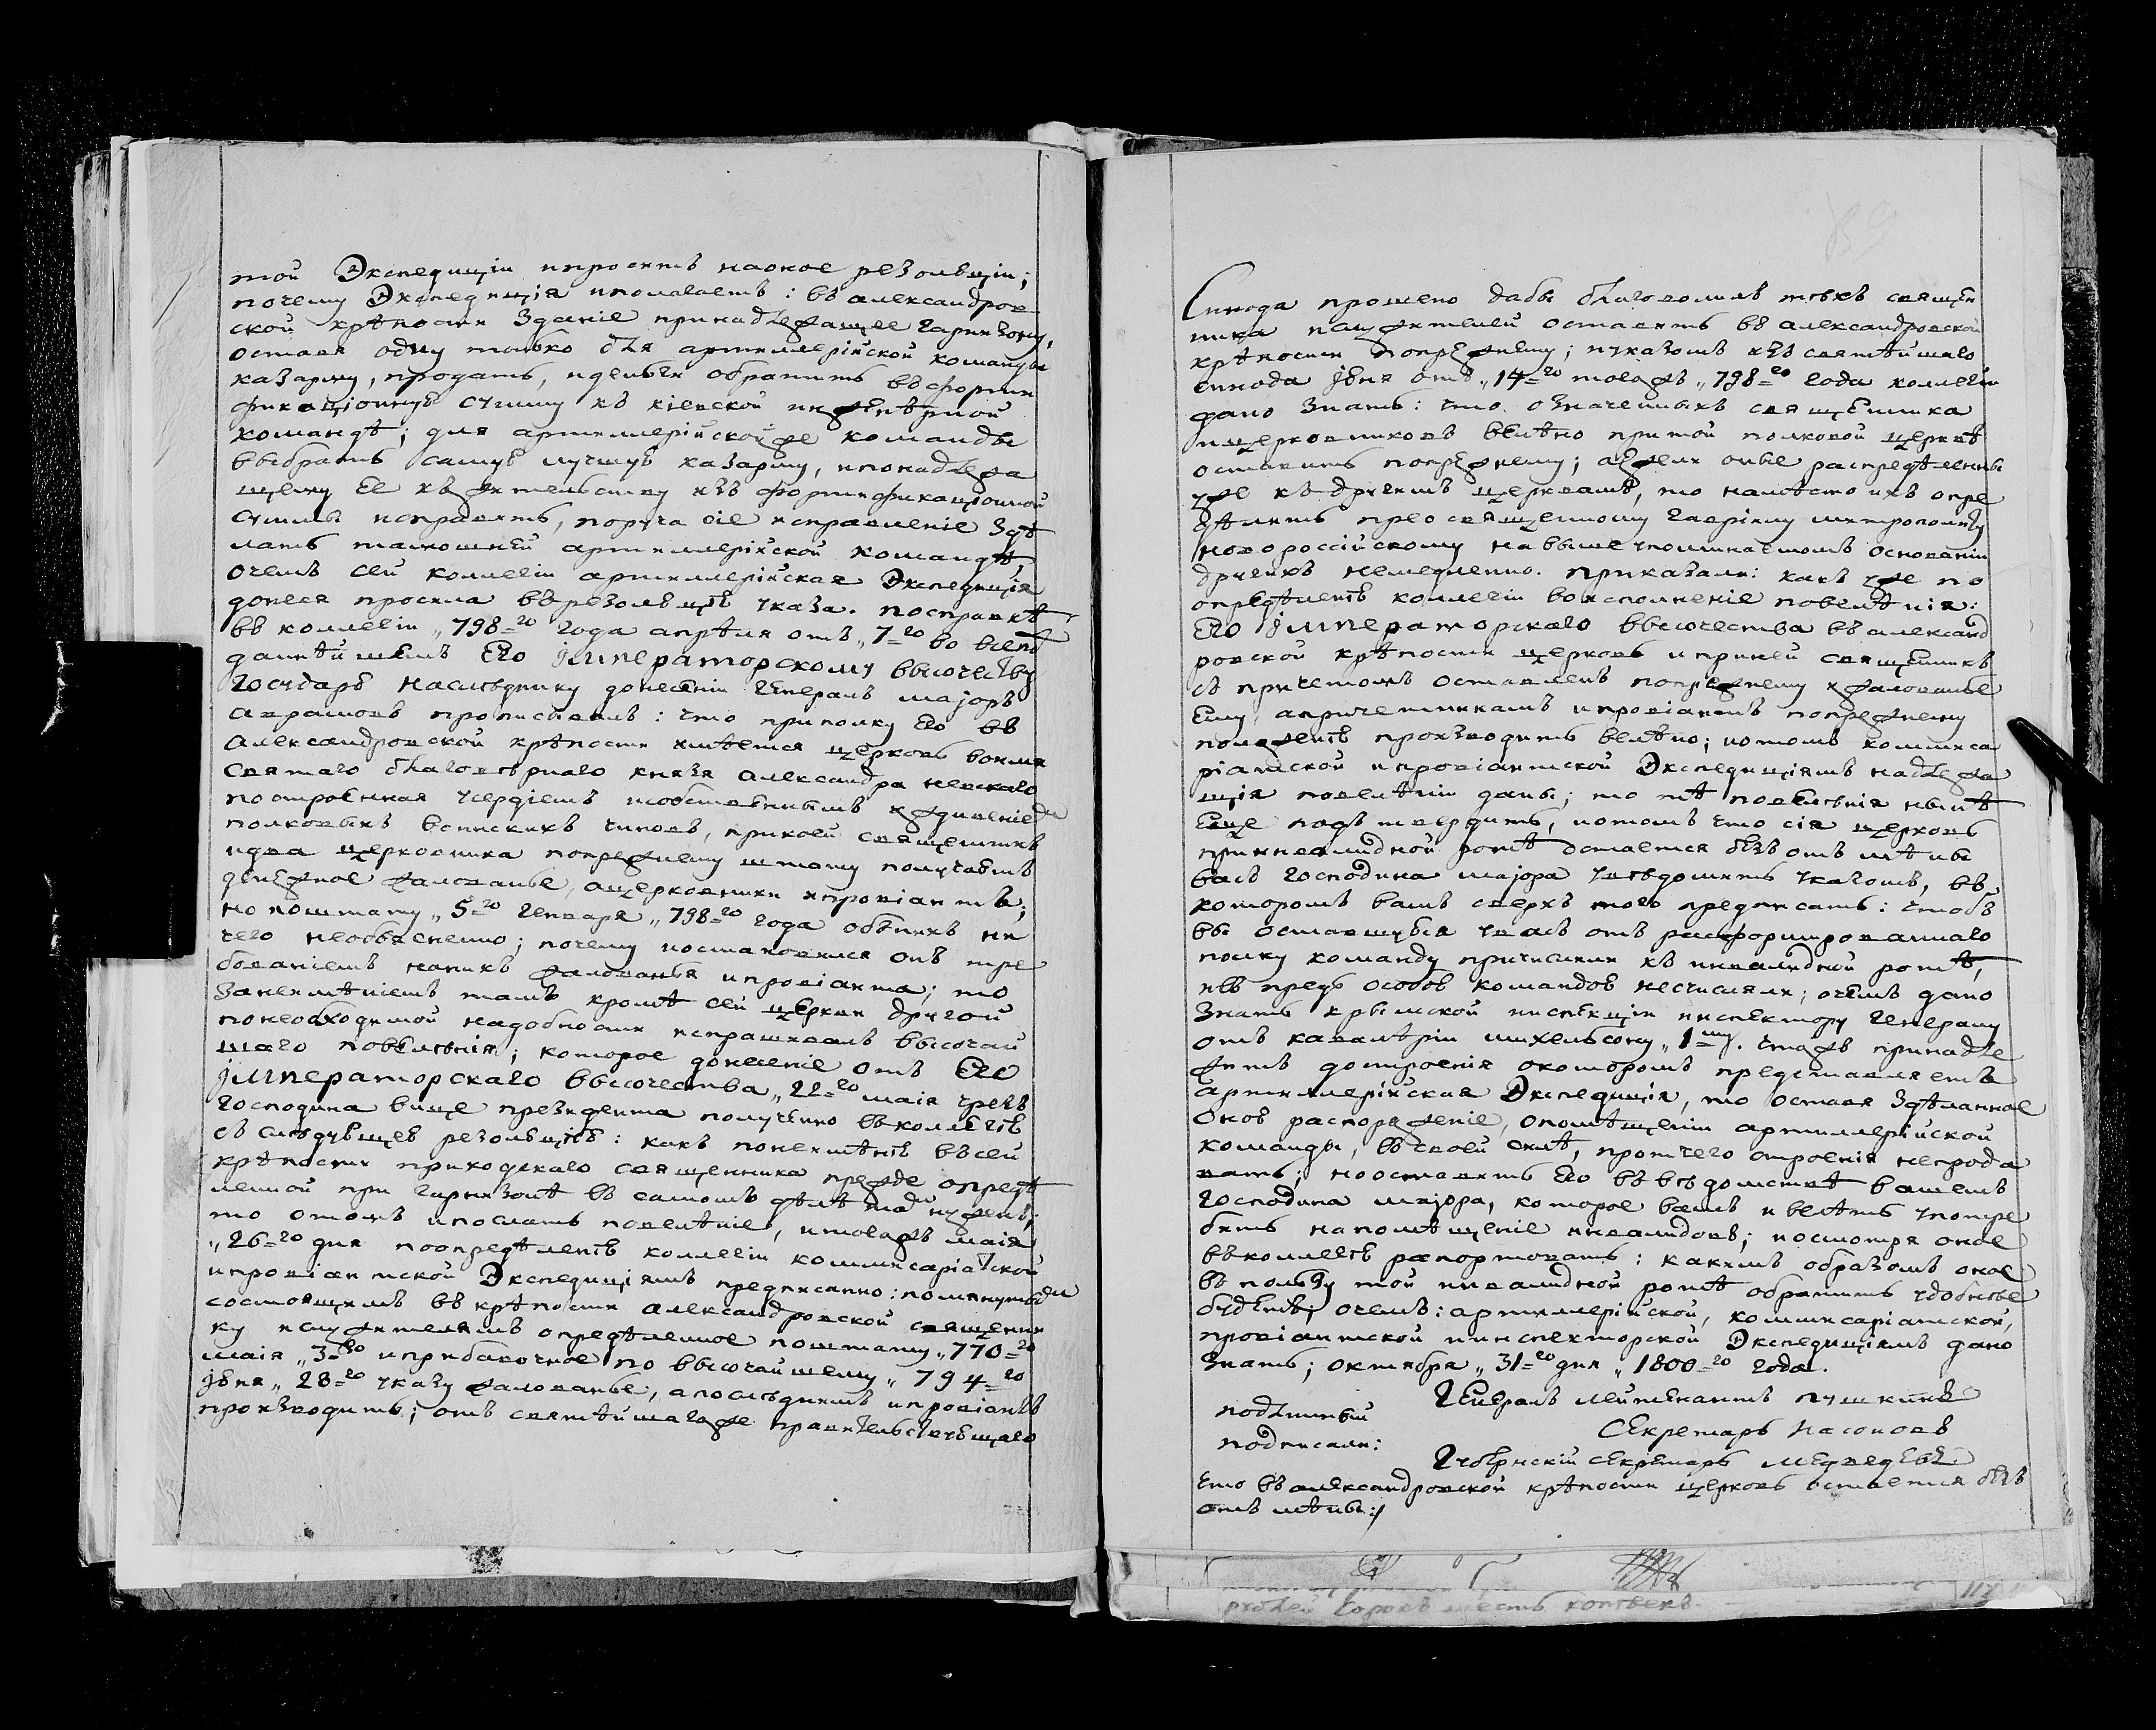 той Экспедиціи ипроситъ наоное резолюціи;
почему Экспедиція иполагаетъ: въ александров
ской крѣпости зданіе принадлежащее гарнизону,
оставя одну только для артиллерійской команды
казарму, продать, иденьги обратить въ форти
фикаціонную сумму къ кіевской инженѣрной
командѣ; для артиллерійскойже команды
выбрать самую лучшую казарму, ипонадлежа
щему ее къ жительству изъ фортификаціонной
суммы исправить, поруча сіе исправленіе здѣ
лать тамошней артиллерійской командѣ,
очемъ сей коллегіи артиллерійская Экспедиція
донеся просила въ резолюцію указа. посправкѣ
въ коллегіи „798=го года апрѣля отъ „7=го во всепо
даннѣйшемъ Его Императорскому высочеству
Государю Наслѣднику донесеніи Генералъ маіоръ
Аврамовъ прописывалъ: что приполку Его въ
Александровской крѣпости имѣется церковь воимя
Святаго благовѣрнаго князя Александра невскаго
построенная усердіемъ исобственнымъ иждивеніемъ
полковыхъ воинскихъ чиновъ, прикоей священникъ
идва церковника попрежнему штату получаютъ
денежное жалованье, ацерковники ипровіантъ;
но поштату „5=го Генваря „798=го года обѣнихъ ни
чего необъяснено; почему иостановился онъ тре
бованіемъ нанихъ жалованья ипровіанта; то
занеимѣніемъ тамъ кромѣ сей церкви другой
понеобходимой надобности испрашивалъ высочай
шаго повелѣнія; которое донесеніе отъ Его
Императорскаго высочества „22=го маія чрезъ
господина вице президента получено въ коллегіи
съ слѣдующею резолюціею: какъ понеимѣнію въ сей
крѣпости приходскаго священника прежде опредѣ
ленной при гарнизонѣ въ самомъ дѣлѣ тамъ нуженъ;
то отомъ ипослать повелѣніе, итогожъ маія
„26=го дня поопредѣленію коллегіи коммисаріатской
ипровіантской Экспедиціямъ предписано: помянутымъ
состоящимъ въ крѣпости александровской священни
ку ислужителямъ опредѣленное поштату „770=го
маія „3=го иприбавочное по высочайшему „794=го
Іюня „28=го указу жалованье, апослѣднимъ ипровіантъ
производить; отъ святѣйшагоже правительствующаго
Синода прошено дабы благоволилъ тѣхъ священ
ника ислужителей оставить въ александровской
крѣпости попрежнему; иуказомъ изъ святѣйшаго
синода Іюня отъ „14=го тогожъ „798=го года коллегіи
дано знать: что означенныхъ священника
ицерковниковъ велѣно притой полковой церквѣ
оставить попрежнему; аежели оные распредѣлены
уже къ другимъ церквамъ, то намѣсто ихъ опре
дѣлить преосвященному гавріилу митрополиту
новороссійскому навышеупоминаемомъ основаніи
другихъ немедленно. приказали: какъ уже по
опредѣленію коллегіи воисполненіе повелѣнія:
Его Императорскаго высочества въ александ
ровской крѣпости церковь ипринеи священникъ
съ причетомъ оставленъ попрежнему ижалованье
ему, апричетникамъ ипровіантъ попрежнему
положенію производить велѣно; иотомъ коммиса
ріатской ипровіантской Экспедиціямъ надлежа
щія повелѣнии даны; то тѣ повелѣнія нынѣ
Еще подтвердить, иотомъ что сія церковь
приинвалидной ротѣ остается безъ отмѣны
васъ господина маіора увѣдомить указомъ, въ
которомъ вамъ сверхъ того предписать: чтобъ
вы оставшуюся увасъ отъ расформированнаго
полку команду причислили къ инвалидной ротѣ,
ивъ предь особою командою несчисляли; очемъ дано
знать крымской инспекціи инспектору Генералу
отъ кавалѣріи михельсону „1=му. чтожъ принадле
житъ достроенія окоторомъ представляетъ
артиллерійская Экспедиція, то оставя здѣланное
Оною распоряженіе, опомѣщеніи артиллерійской
команды, въ своей силѣ, протчего строенія непрода
вать; нооставить Его въ вѣдомствѣ вашемъ
господина маіора, которое вамъ и велѣть употре
бить напомѣщеніе инвалидовъ; иосмотря оное
въ коллегію рапортовать: какимъ образомъ оное
въ пользу той инвалидной ротѣ обратить удобнѣе
будетъ; очемъ: артиллерійской, коммисаріатской,
провіантской иинспекторской Экспедиціямъ дано
знать; октября „31=го дня „1800=го года.
подлинный Генералъ лейтенантъ пушкинъ
подписали: Секретарь Насоновъ
Губернскій секретарь медведевъ
что въ александровской крѣпости церковь остается безъ
отмѣны